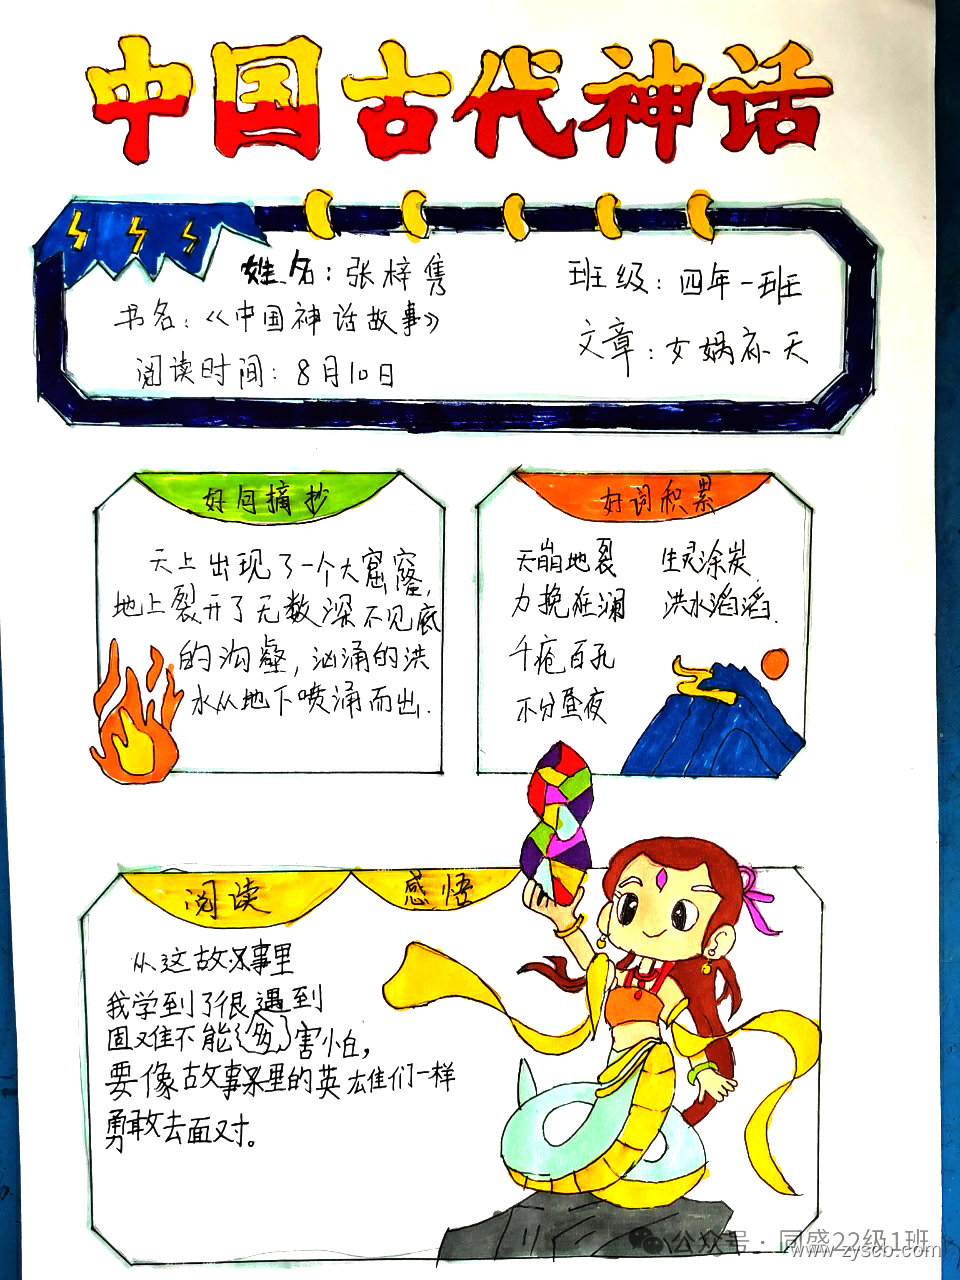 中国古代神话
姓名：张梓隽
班级：四年一班
书名：《中国神话故事》
文章：女娲补天
阅读时间：8月10日
好句摘抄
天上出现了一个大窟窿，
地上裂开了无数深不见底
的沟壑，汹涌的洪
水从地下喷涌而出.
好词积累
天崩地裂 生灵涂炭
力挽狂澜 洪水滔滔.
千疮百孔
不分昼夜
阅读 感悟
从这故事里
我学到了很 遇到
困难不能 害怕，
要像故事里的英雄们一样
勇敢去面对。
公众号·同盛22级1班
www.zyscb.com